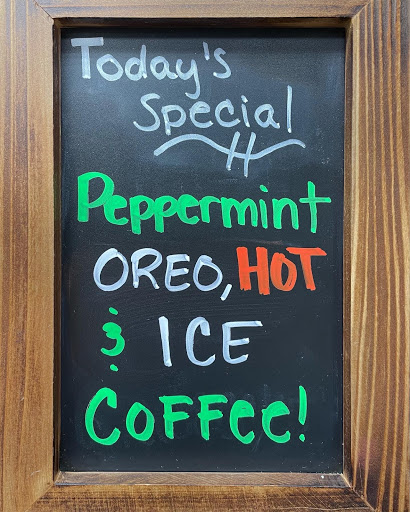 Today's
Special
Peppermint
OREO, HOT
& ICE
Coffee!